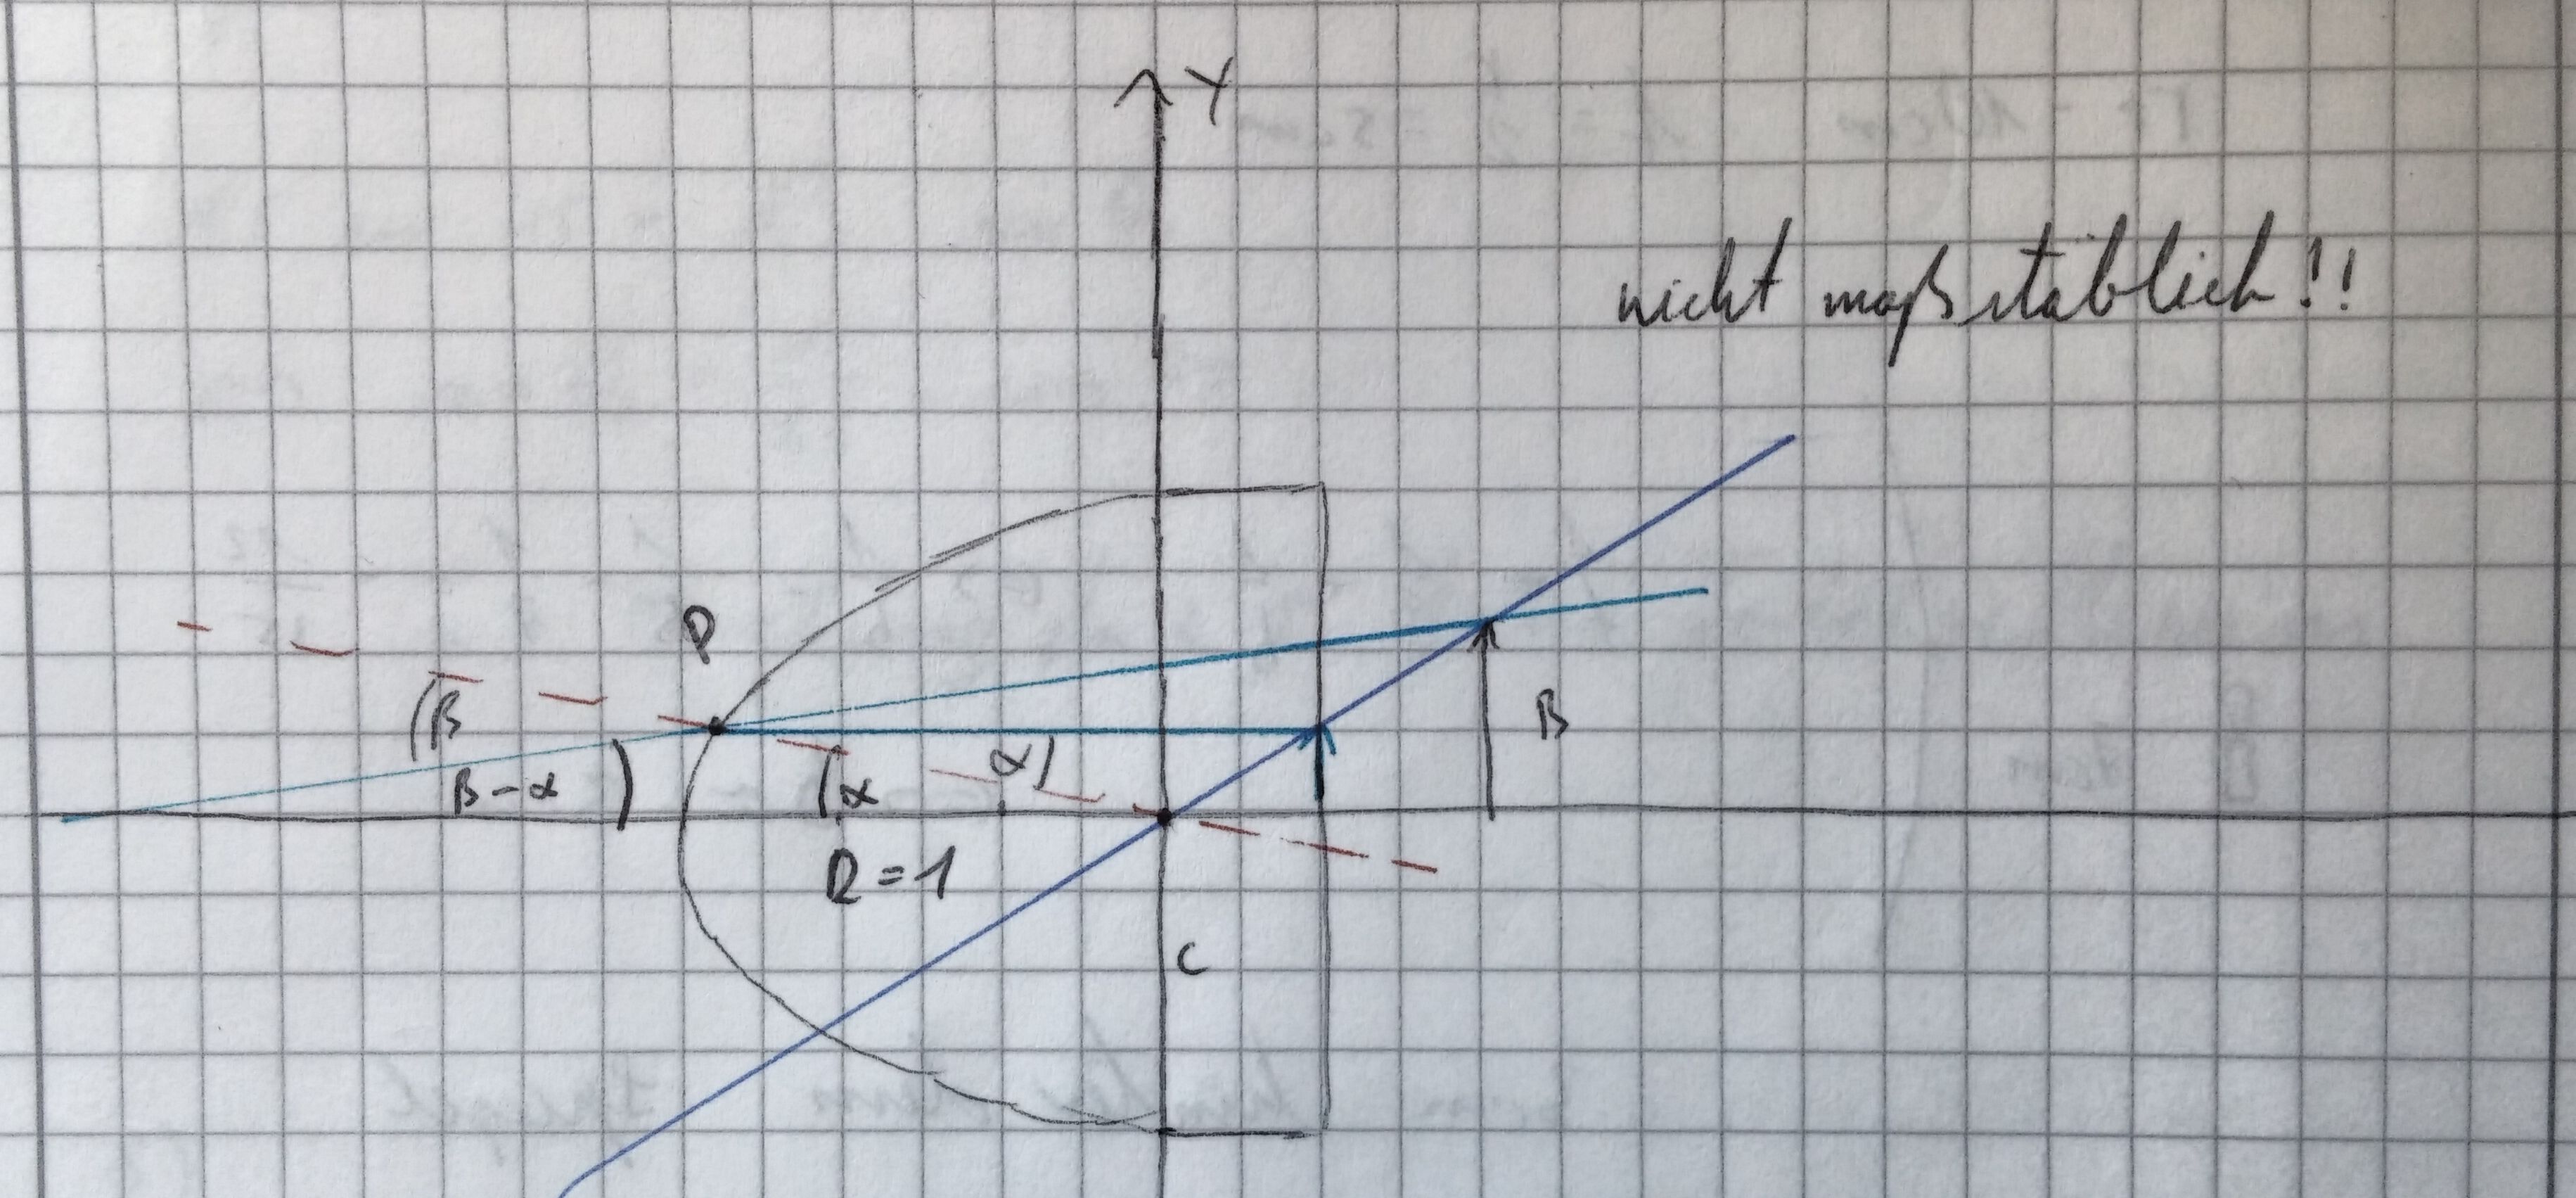 Y
nicht maßstäblich!!
P
β
B
α
β-α
α
R=1
C